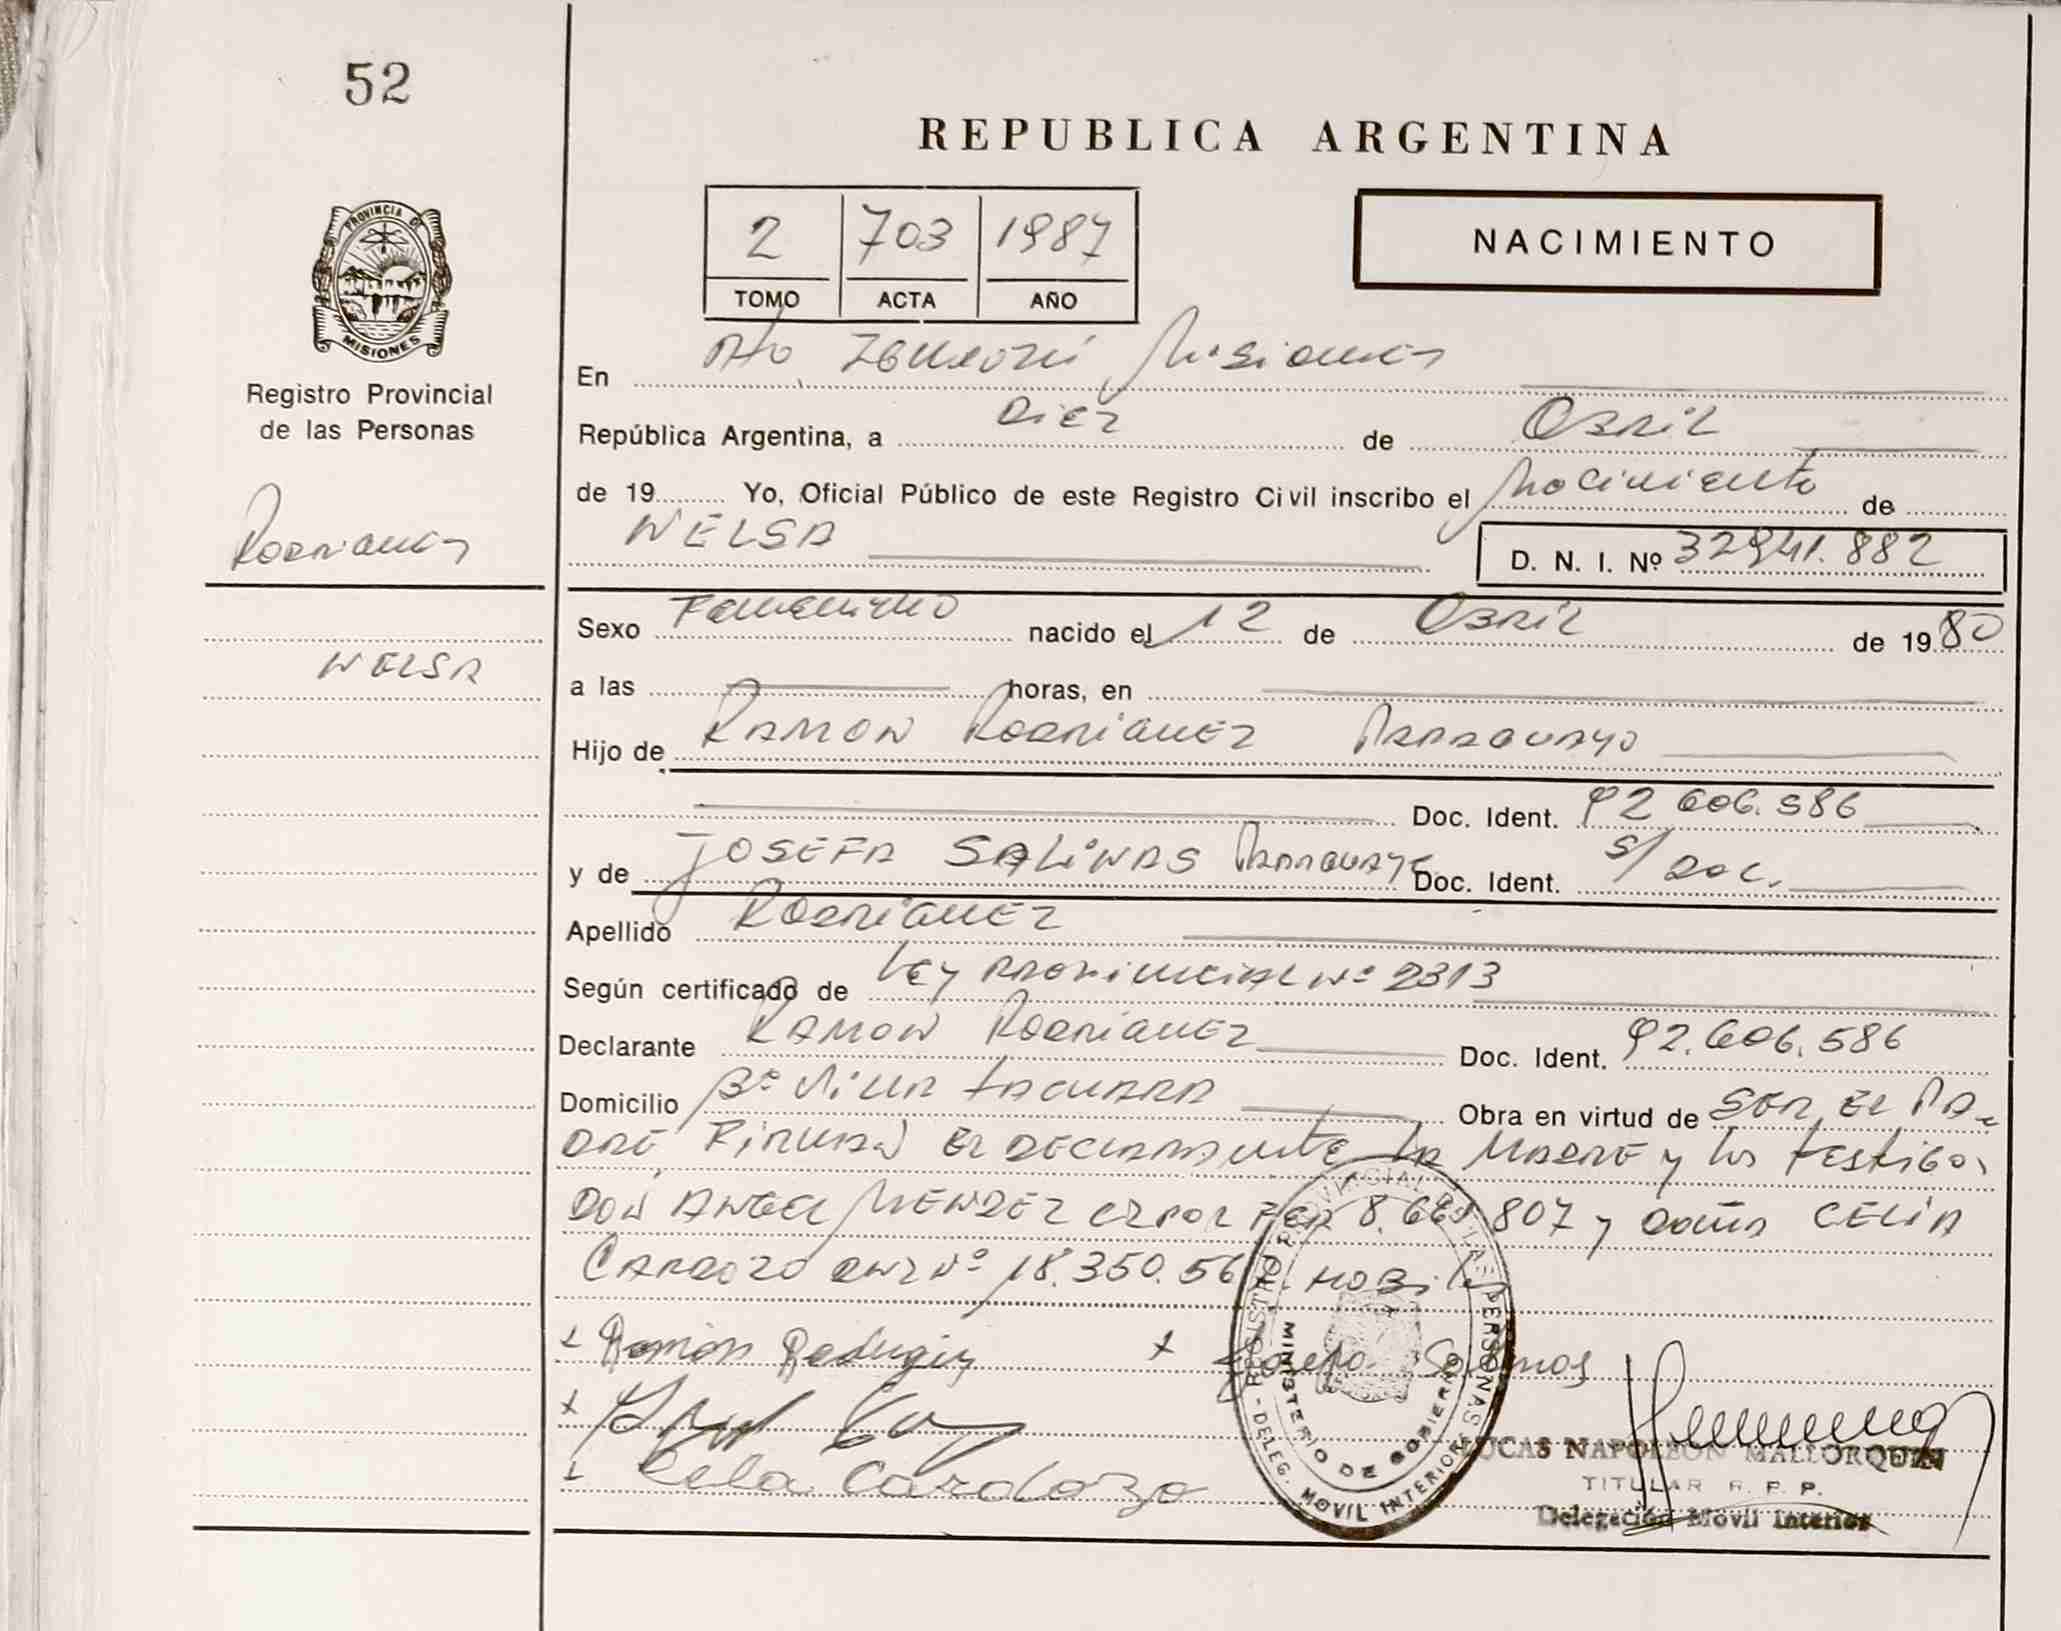 52
REPUBLICA ARGENTINA
PROVINCIA DE
MISIONES
Registro Provincial
de las Personas
2 703 1987
TOMO ACTA AÑO
NACIMIENTO
En Pto Misiones
República Argentina, a Diez de Abril
de 19 Yo, Oficial Público de este Registro Civil inscribo el Nacimiento de
Rodriguez
WELSA
D. N. I. Nº 32.941.882
Sexo Femenino nacido el 12 de Abril de 1980
WELSA
a las horas, en
Hijo de RAMON RODRIGUEZ PARAGUAYO
Doc. Ident. 92.606.586
y de JOSEFA SALINAS PARAGUAYA Doc. Ident. s/ Doc.
Apellido RODRIGUEZ
Según certificado de Ley PROVINCIAL Nº 2313
Declarante RAMON RODRIGUEZ Doc. Ident. 92.606.586
Domicilio Bº VILLA TACUARA Obra en virtud de SER EL PA-
DRE, FIRMAN EL DECLARANTE LA MADRE y los testigos
DON ANGEL MENDEZ 8. 807 y DOÑA CELIA
CARDOZO DNI Nº 18.350.56
Ramón Josefa Salinas
Cela Cardozo
REGISTRO PROVINCIAL DE LAS PERSONAS
MINISTERIO DE GOBIERNO
-DELEG. MOVIL INTERIOR
LUCAS NAPOLEON MALLORQUIN
TITULAR R. P. P.
Delegación Móvil Interior